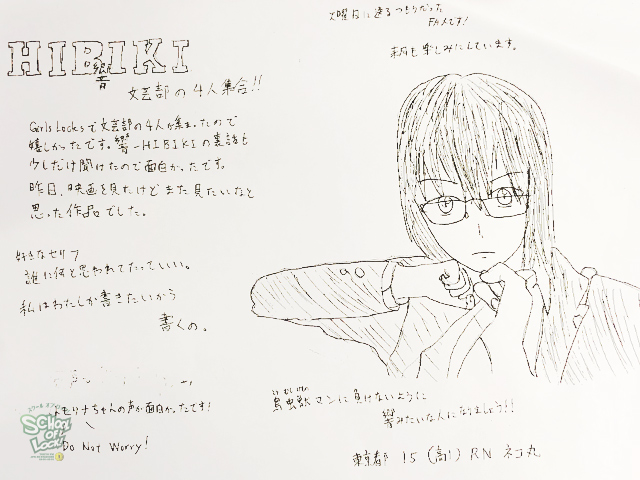 火曜日に送るつもりだった
FAXです!
来週も楽しみにしています。
HIBIKI
響
文芸部の4人集合!!
Girls Locksで文芸部の4人が集まったので
嬉しかったです。響-HIBIKIの裏話も
少しだけ聞けたので面白かったです。
昨日、映画を見たけどまた見たいなと
思った作品でした。
好きなセリフ
誰に何と思われてたっていい。
私はわたしが書きたいから
書くの。
モリナちゃんの声が面白かったです!
Do Not Worry!
鳥虫獣マンに負けないように
響みたいな人になりましょう!!
東京都 15 (高1) RN ネコ丸
スクールオブロック
SCHOOL
OF
LOCK!